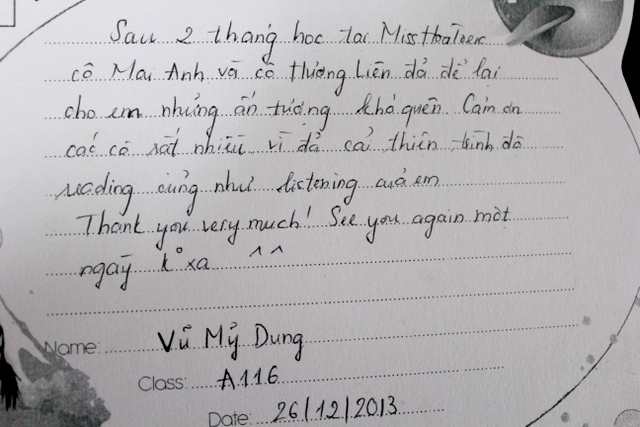 Sau 2 tháng học tại MissHoaToeic
cô Mai Anh và cô Hương Liên đả để lại
cho em nhưng ấn tượng khó quên. Cảm ơn
các cô rất nhiều vì đả cải thiên trình độ
reading cũng như listening của em
Thank you very much! See you again một
ngày k° xa ^^
Name: Vũ Mỷ Dung
Class: A116
Date: 26/12/2013